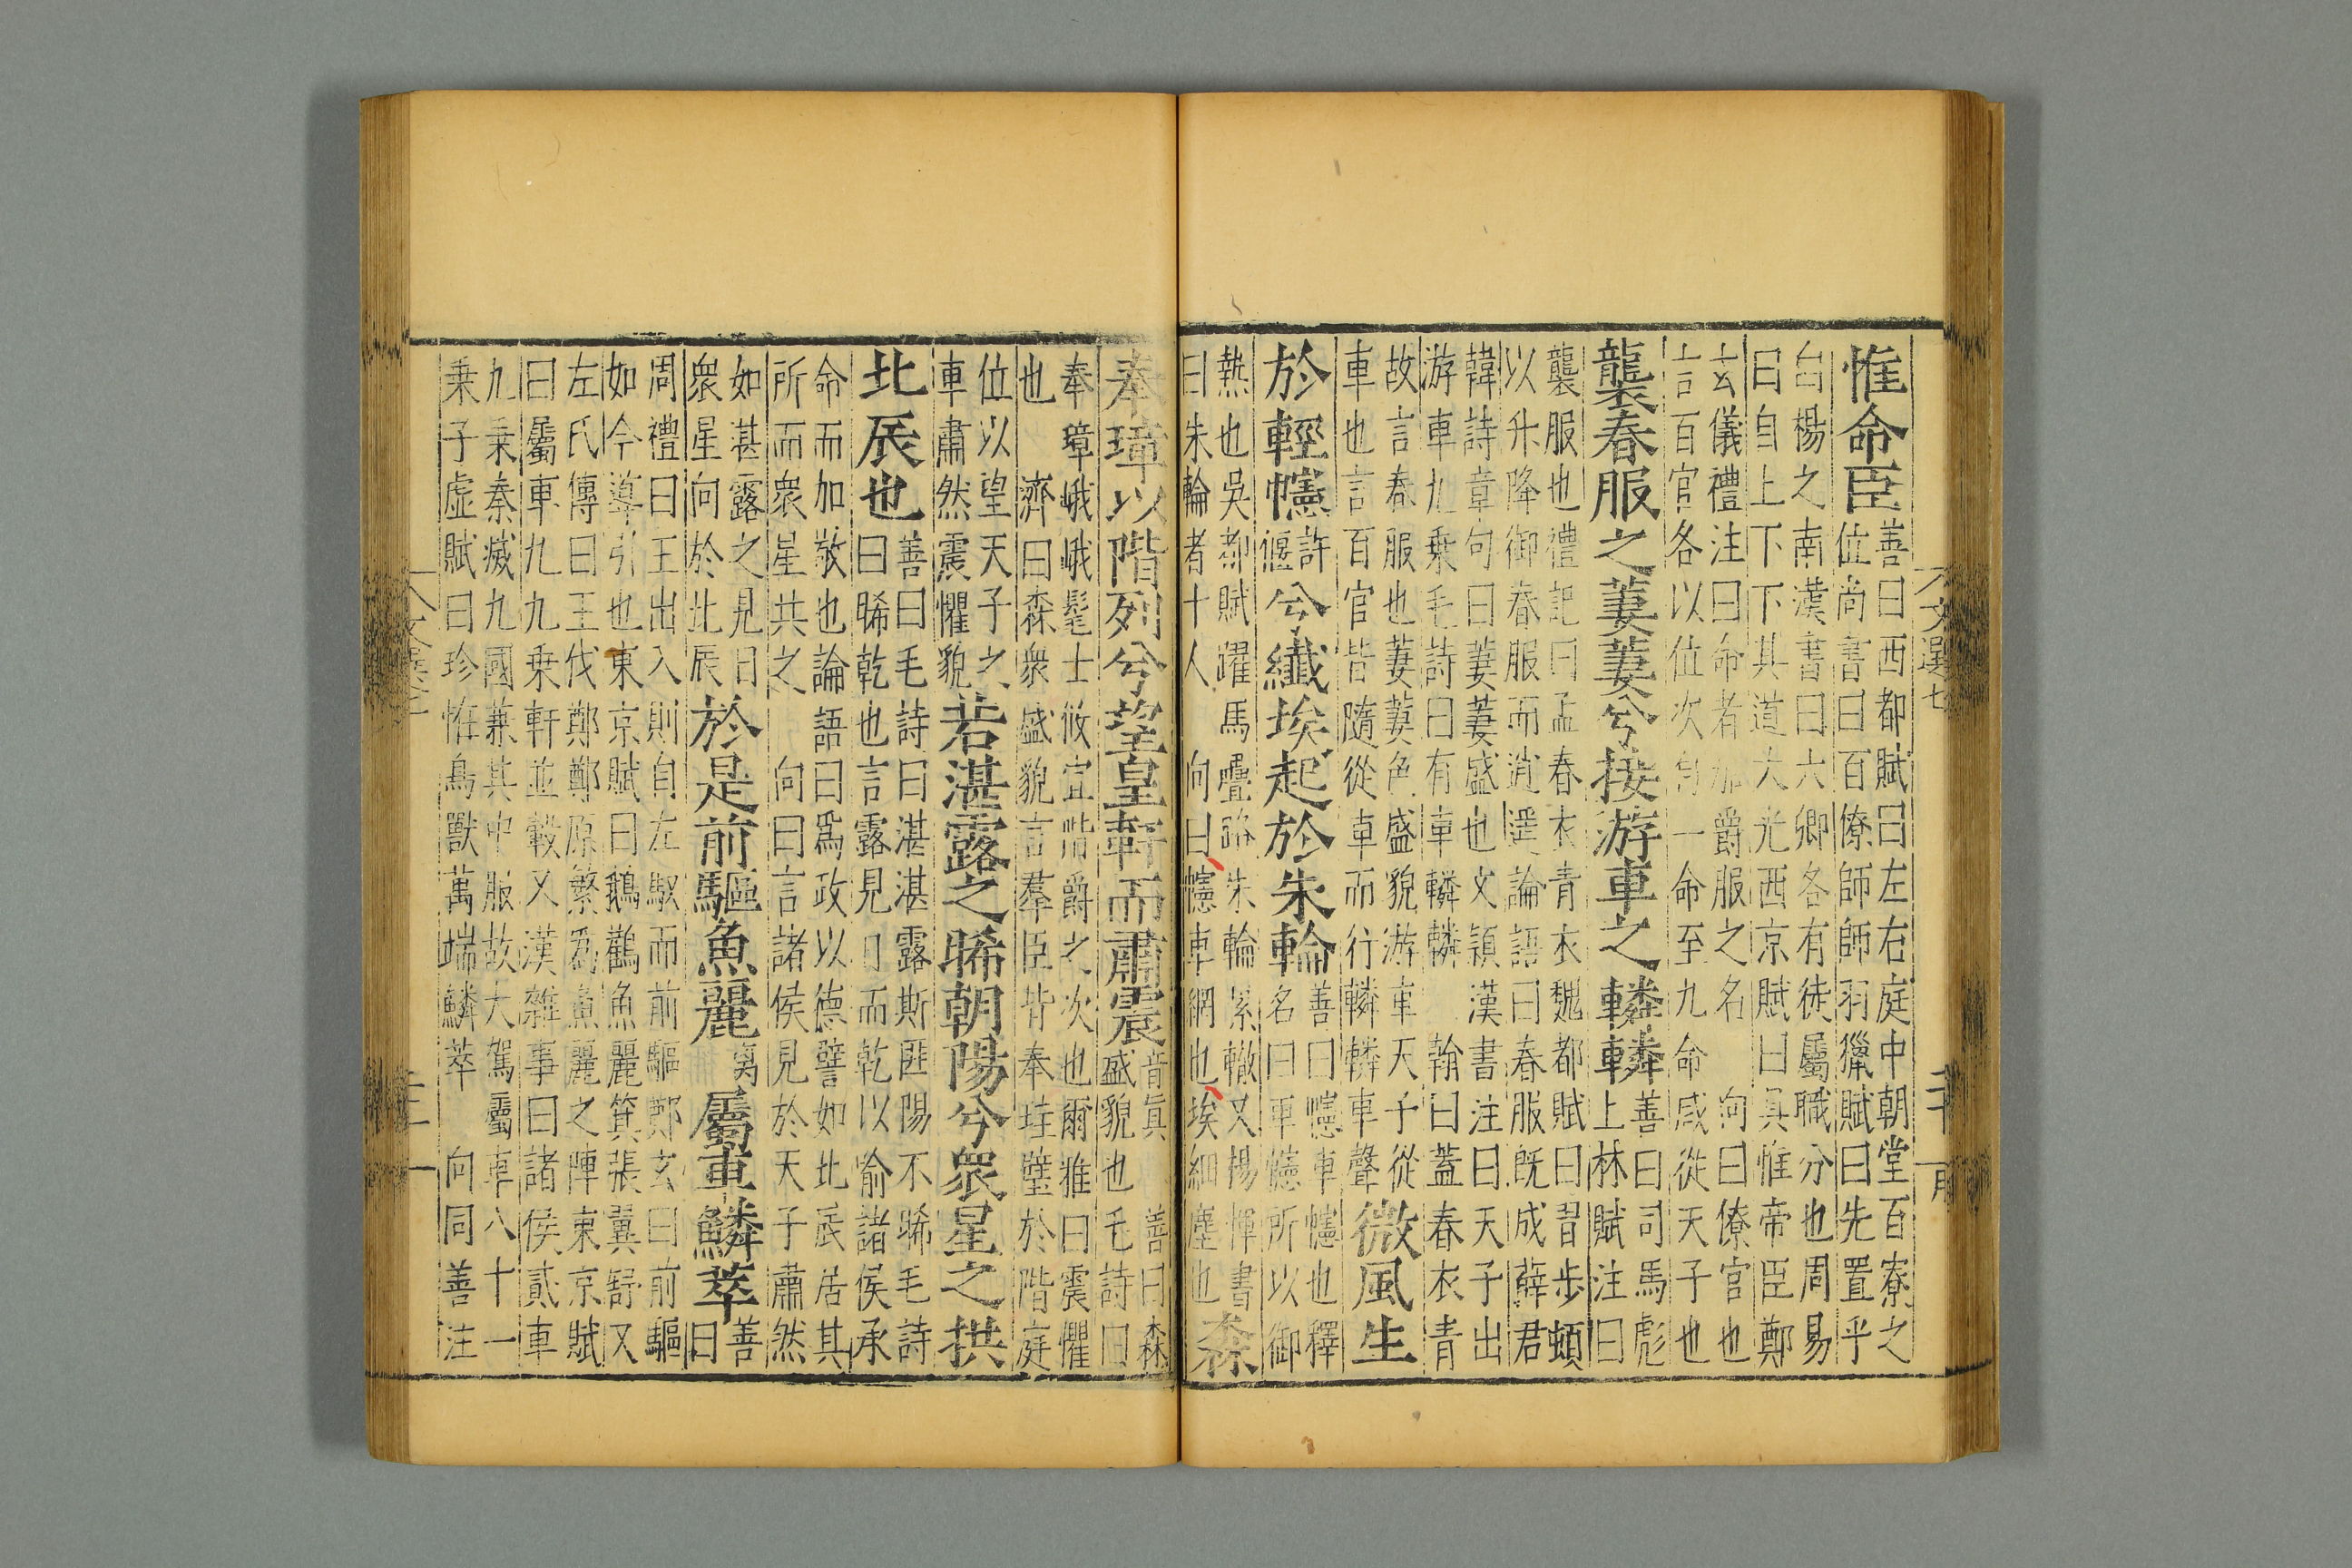 文選七
二十
惟命臣
善曰西都賦曰左右庭中朝堂百寮之
位尚書曰百僚師師羽獵賦曰先置乎
白楊之南漢書曰六卿各有徒屬職分也周易
曰自上下下其道大光西京賦曰具惟帝臣鄭
玄儀禮注曰命者加爵服之名 向曰僚官也
言百官各以位次自一命至九命咸從天子也
襲春服之萋萋兮接游車之轔轔
善曰司馬彪
上林賦注曰
襲服也禮記曰孟春衣青衣魏都賦曰習步頓
以升降御春服而逍遥論語曰春服既成薛君
韓詩章句曰萋萋盛也文頴漢書注曰天子出
游車九乗毛詩曰有車轔轔 翰曰蓋春衣青
故言春服也萋萋色盛貌游車天子從
車也言百官皆隨從車而行轔轔車聲
微風生
於輕幰
許
偃
兮纖埃起於朱輪
善曰幰車幰也釋
名曰車幰所以御
熱也吳都賦躍馬疊跡朱輪累轍又楊惲書
曰朱輪者十人 向曰幰車網也埃細塵也
森
奉璋以階列兮望皇軒而肅震
音真 善曰森
盛貌也毛詩曰
奉璋峨峨髦士攸宜階爵之次也爾雅曰震懼
也 濟曰森衆盛貌言羣臣皆奉珪璧於階庭
位以望天子之
車肅然震懼貌
若湛露之晞朝陽兮衆星之拱
北辰也
善曰毛詩曰湛湛露斯匪陽不晞毛詩
曰晞乾也言露見日而乾以喻諸侯承
命而加敬也論語曰爲政以德譬如北辰居其
所而衆星共之 向曰言諸侯見於天子蕭然
如甚露之見日
衆星向於北辰
於是前驅魚麗
离
屬車鱗萃
善
曰
周禮曰王出入則自左馭而前驅鄭玄曰前驅
如今導引也東京賦曰鵝鸛魚麗箕張翼舒又
左氏傳曰王伐鄭鄭原繁爲魚麗之陣東京賦
曰屬車九九乗軒並轂又漢雜事曰諸侯貳車
九乗秦滅九國兼其中服故大駕屬車八十一
乗子虛賦曰珍怪鳥獸萬端鱗萃 向同善注